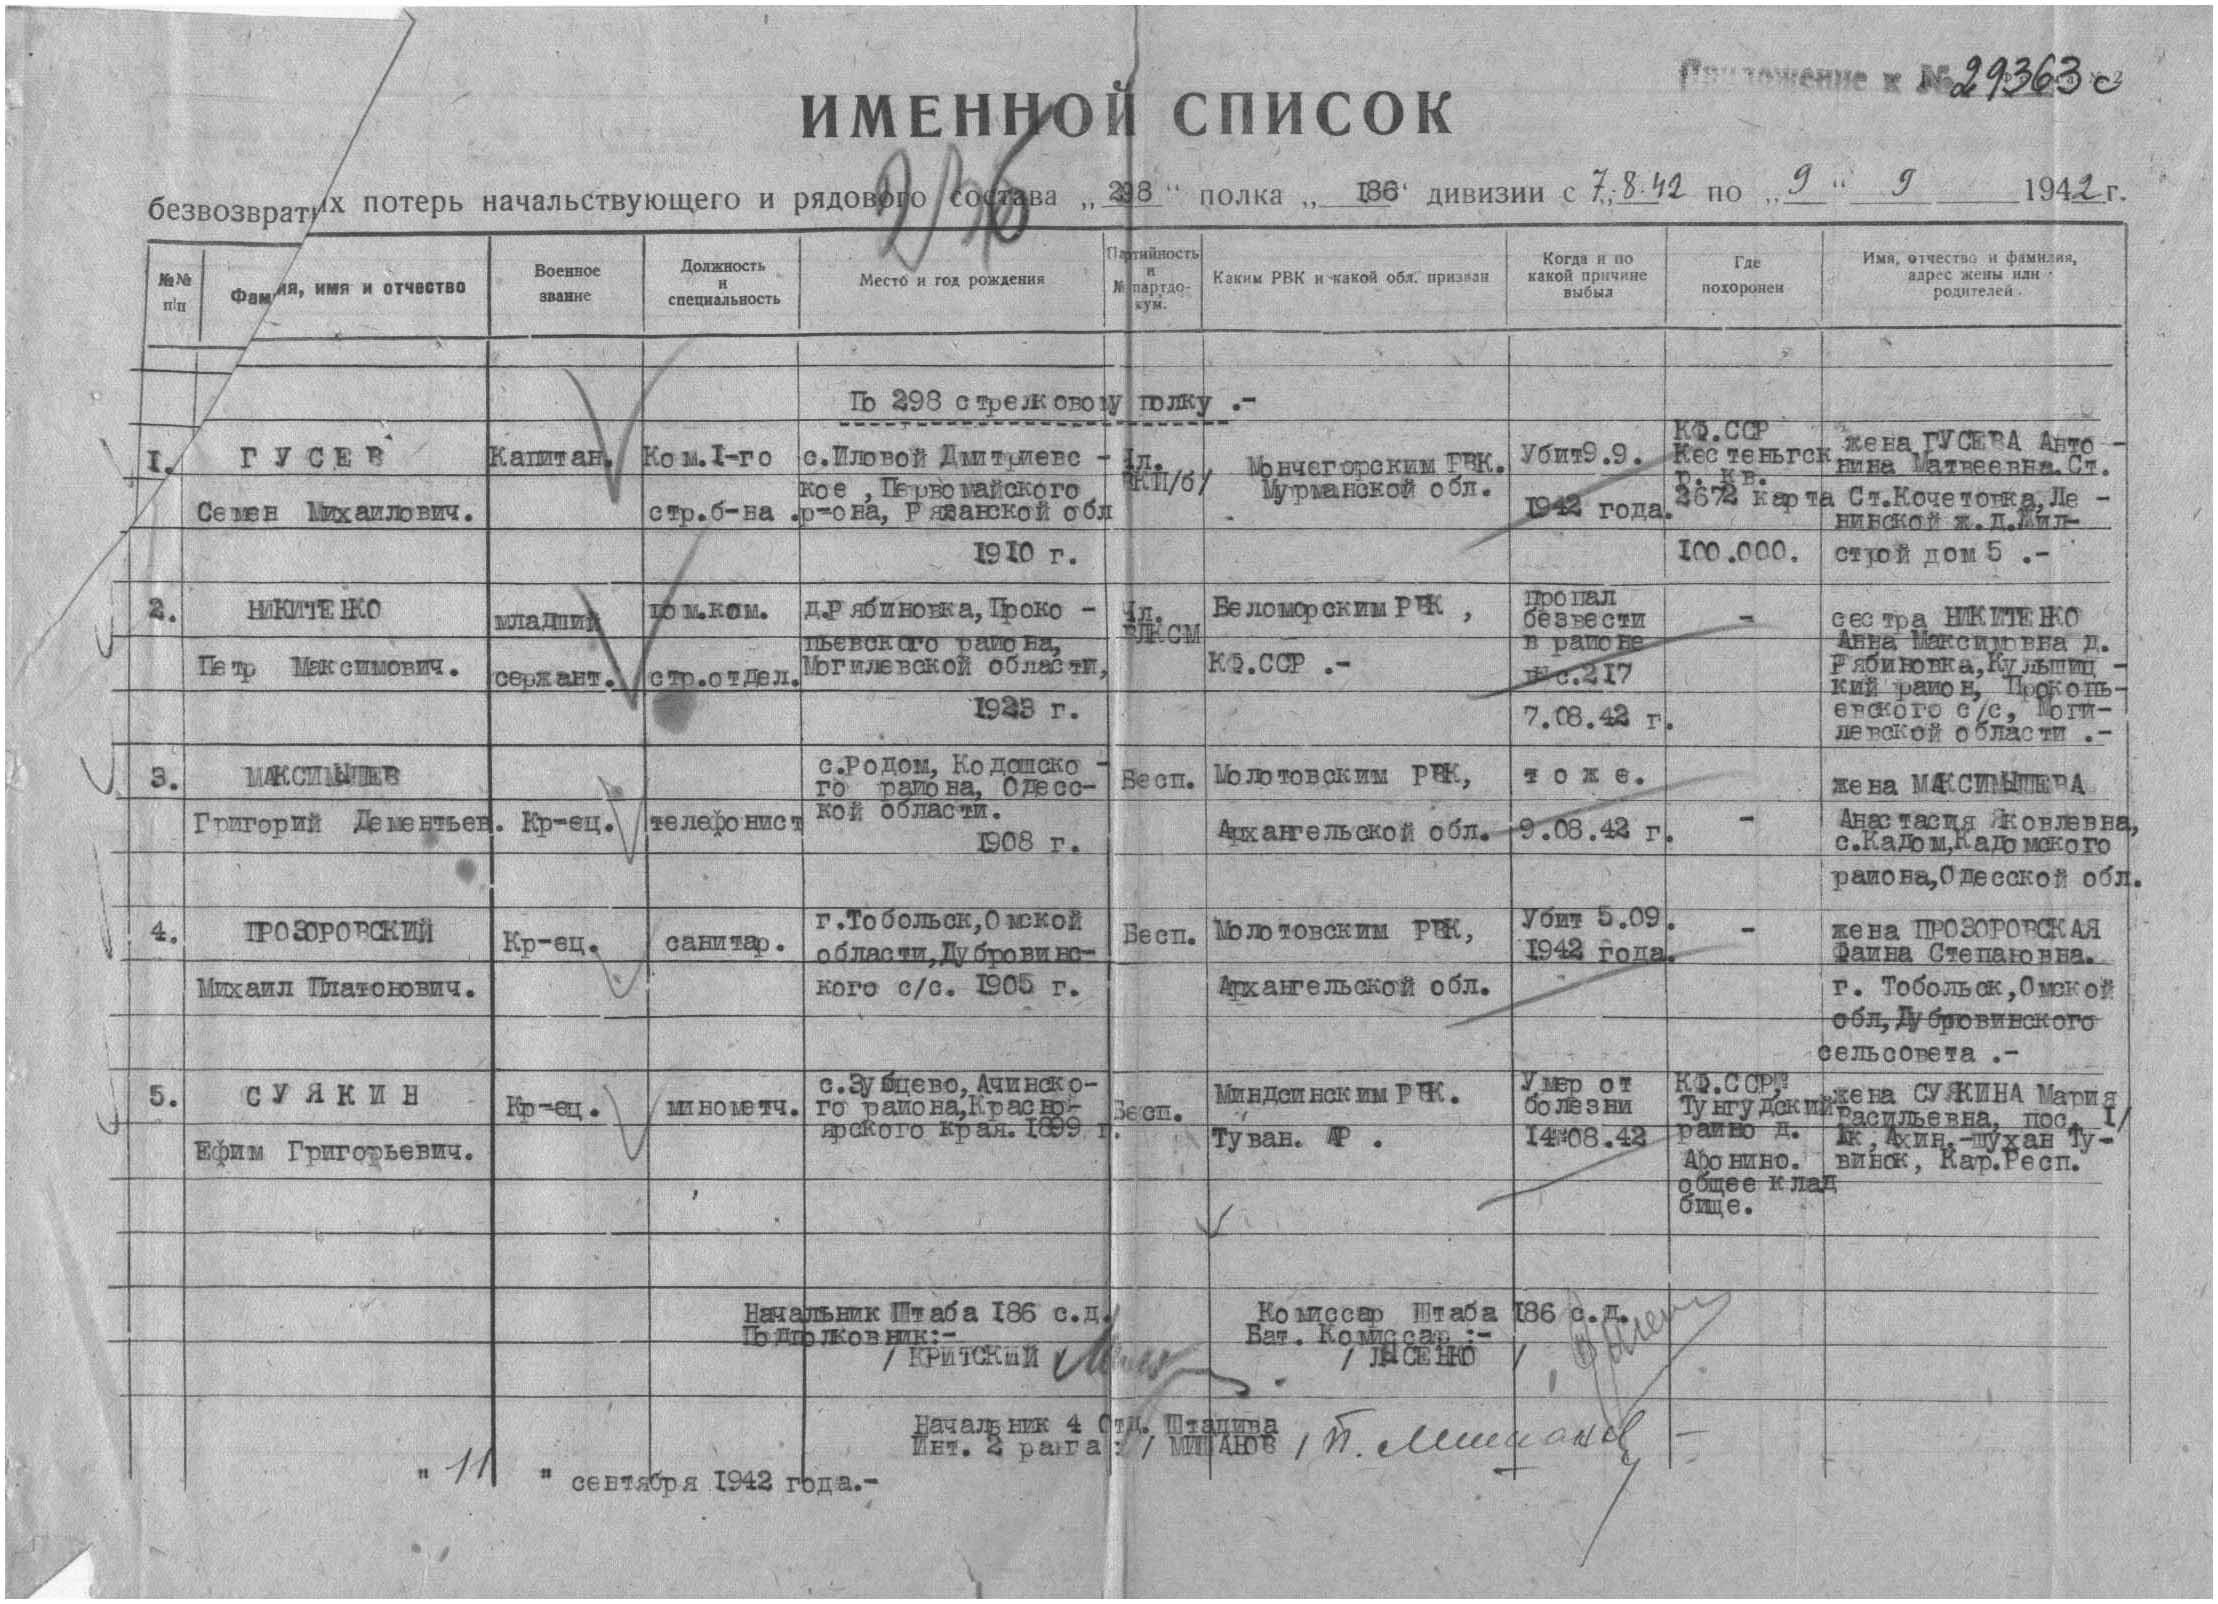 Приложение к № 29363с
ИМЕННОЙ СПИСОК
безвозвратных потерь начальствующего и рядового состава „298“ полка „186“ дивизии с 7.8.42 по „9“ 9 1942 г.
№№ п/п
Фамилия, имя и отчество
Военное звание
Должность и специальность
Место и год рождения
Партийность и № партдокум.
Каким РВК и какой обл. призван
Когда и по какой причине выбыл
Где похоронен
Имя, отчество и фамилия, адрес жены или родителей.
По 298 стрелковому полку .-
1. ГУСЕВ
Семен Михаилович.
Капитан.
Ком.I-го
стр.б-на.
с.Иловой Дмитриевс-
кое, Первомайского
р-она, Рязанской обл
1910 г.
Чл.
ВКП/б/
Мончегорским РВК.
Мурманской обл.
Убит 9.9.
1942 года.
КФ.ССР
Кестеньгск
р. кв.
2672 карта
100.000.
жена ГУСЕВА Анто-
нина Матвеевна.Ст.
Ст.Кочетовка,Ле-
нинской ж.д.Жил-
строй дом 5 .-
2. НИКИТЕНКО
Петр Максимович.
младший
сержант.
пом.ком.
стр.отдел.
д.Рябиновка,Проко-
пьевского района,
Могилевской области,
1923 г.
Чл.
ВЛКСМ
Беломорским РВК,
КФ.ССР .-
пропал
безвести
в районе
с.217
7.08.42 г.
-
сестра НИКИТЕНКО
Анна Максимовна д.
Рябиновка,Кульшиц-
кий район, Прокопь-
евского с/с, Моги-
левской области .-
3. МАКСИМЫШЕВ
Григорий Дементьев.
Кр-ец.
телефонист
с.Родом, Кодошско-
го района, Одесс-
кой области.
1908 г.
Бесп.
Молотовским РВК,
Архангельской обл.
тоже.
9.08.42 г.
-
жена МАКСИМЫШЕВА
Анастасия Яковлевна,
с.Кадом,Кадомского
района,Одесской обл.
4. ПРОЗОРОВСКИЙ
Михаил Платонович.
Кр-ец.
санитар.
г.Тобольск,Омской
области,Дубровинс-
кого с/с. 1905 г.
Бесп.
Молотовским РВК,
Архангельской обл.
Убит 5.09.
1942 года.
-
жена ПРОЗОРОВСКАЯ
Фаина Степановна.
г. Тобольск,Омской
обл,Дубровинского
сельсовета .-
5. СУЯКИН
Ефим Григорьевич.
Кр-ец.
минометч.
с.Зубцево, Ачинско-
го района,Красно-
ярского края. 1899 г.
Бесп.
Миндсинским РВК.
Туван. АР .
Умер от
болезни
14.08.42
КФ.ССР,
Тунгудский
раино д.
Афонино.
общее клад
бище.
жена СУЯКИНА Мария
Васильевна, пос. I/
Ик, Ахин.-шухан Ту-
винск, Кар.Респ.
Начальник Штаба 186 с.д.
Подполковник:-
/ КРИТСКИЙ /
Комиссар Штаба 186 с.д.
Бат. Комиссар :-
/ ЛЫСЕНКО /
Начальник 4 Отд. Штадива
Инт. 2 ранга: / МИШАНОВ /
"11" сентября 1942 года.-